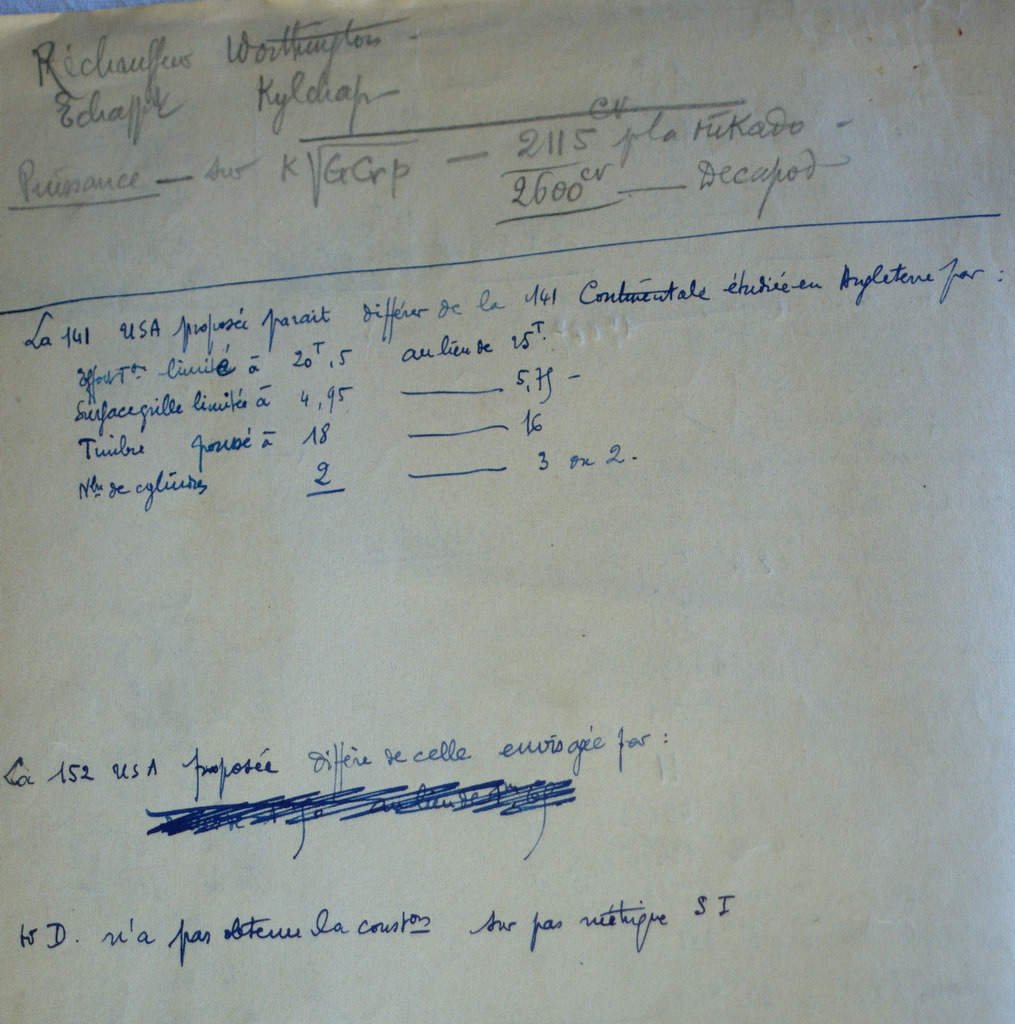 Réchauffeur Worthington -
Echappt Kylchap
Puissance — sur K√GCrp — 2115 CV p la Mikado -
2600 CV — Decapod
La 141 USA proposée parait différer de la 141 Continentale étudiée en Angleterre par :
Effort Ton limité à 20T,5 au lieu de 25T.
Surface grille limitée à 4,95 — 5,75 -
Timbre poussé à 18 — 16
Nbre de cylindres 2 — 3 ou 2.
La 152 USA proposée diffère de celle envisagée par :
au lieu de
W D. n'a pas obtenu la conston sur pas métrique S I